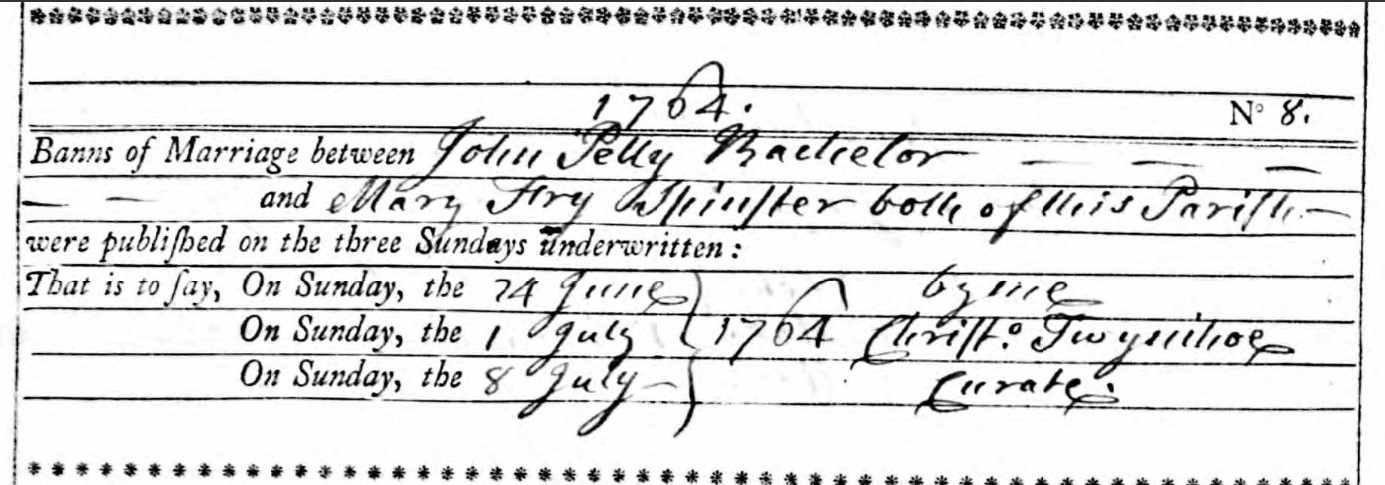 1764.
N° 8.
Banns of Marriage between John Pelly Bachelor
and Mary Fry Spinſter both of this Pariſh
were publiſhed on the three Sundays underwritten:
That is to ſay, On Sunday, the 24 June by me
On Sunday, the 1 July 1764 Chriſt.° Twynihoe
On Sunday, the 8 July Curate.